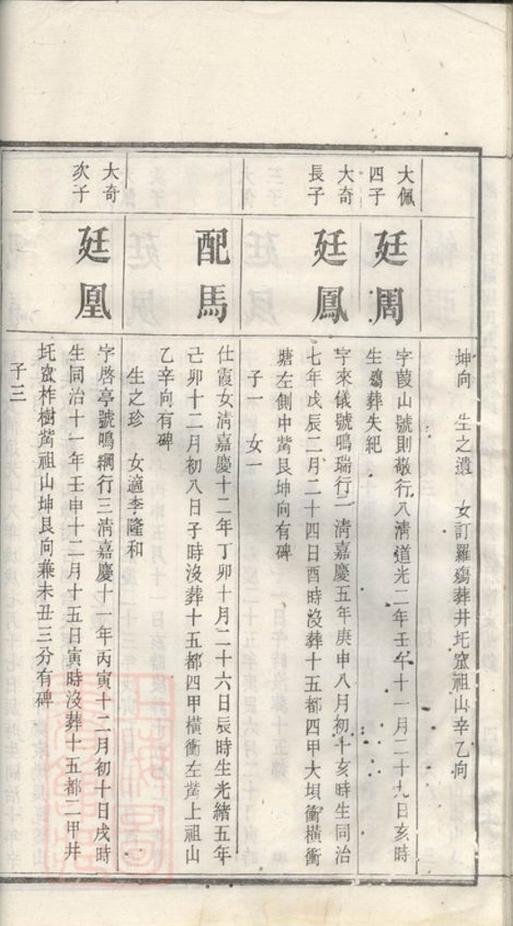 坤向　生之遺　女訂羅殤葬井圫窰祖山辛乙向
大佩
四子
廷周
字葭山號則敬行八淸道光二年壬午十一月二十九日亥時
生殤葬失紀
大奇
長子
廷鳳
字來儀號鳴瑞行二淸嘉慶五年庚申八月初十亥時生同治
七年戊辰二月二十四日酉時沒葬十五都四甲大垻衝橫衝
塘左側中嵹艮坤向有碑
子一　女一
配馬
仕霞女淸嘉慶十二年丁卯十月二十六日辰時生光緒五年
己卯十二月初八日子時沒葬十五都四甲橫衝左嵹上祖山
乙辛向有碑
生之珍　女適李隆和
大奇
次子
廷凰
字啓亭號鳴綱行三淸嘉慶十一年丙寅十二月初十日戌時
生同治十一年壬申十二月十五日寅時沒葬十五都二甲井
圫窰柞樹嵹祖山坤艮向兼未丑三分有碑
子三